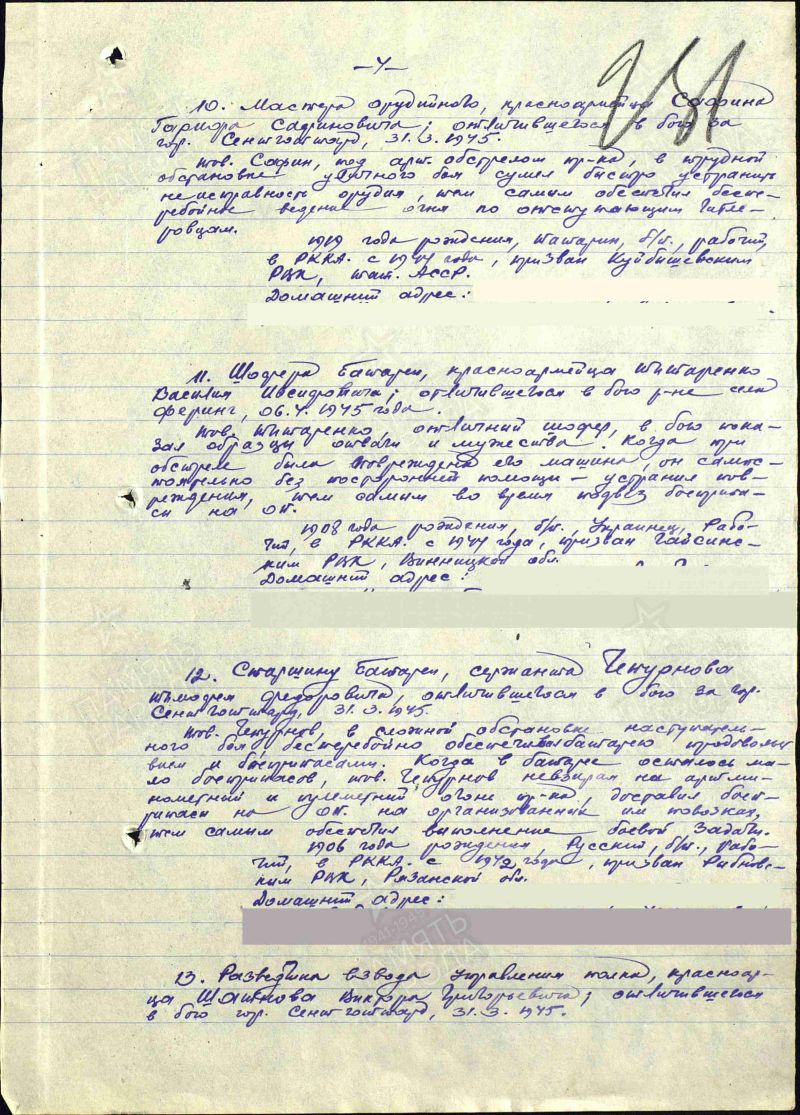 -4-
10. Мастера орудийного, красноармейца Сафина
Гарифа Сафиновича; отличившегося в бою за
гор. Сентготтард, 31.3.1945.
тов. Сафин, под арт. обстрелом пр-ка, в трудной
обстановке уличного боя сумел быстро устранить
неисправность орудия, тем самым обеспечил беспе-
ребойное ведение огня по отступающим гитле-
ровцам.
1919 года рождения, татарин, б/п., рабочий,
в РККА. с 1941 года, призван Куйбышевским
РВК, тат. АССР.
Домашний адрес:
11. Шофера батареи, красноармейца Титаренко
Василия Исидоровича; отличившегося в бою р-не села
Феринг, 06.4.1945 года.
тов. Титаренко, отличный шофер, в бою пока-
зал образцы отваги и мужества. Когда при
обстреле была повреждена его машина, он самос-
тоятельно без посторонней помощи - устранил пов-
реждения, тем самым во время подвез боеприпа-
сы на ОП.
1908 года рождения, б/п., Украинец, Рабо-
чий, в РККА. с 1944 года, призван Гайсинс-
ким РВК, Винницкой обл.
Домашний адрес:
12. Старшину батареи, сержанта Чепурнова
Тимофея Федоровича, отличившегося в бою за гор.
Сентготтард, 31.3.1945.
тов. Чепурнов, в сложной обстановке наступатель-
ного боя бесперебойно обеспечивал батарею продовольст
вием и боеприпасами. Когда в батарее осталось ма-
ло боеприпасов, тов. Чепурнов невзирая на артми-
нометный и пулеметный огонь пр-ка, доставил боеп-
рипасы на ОП. на организованных им повозках,
тем самым обеспечил выполнение боевой задачи.
1906 года рождения, Русский, б/п., рабо-
чий, в РККА. с 1942 года, призван Рыбновс-
ким РВК, Рязанской обл.
Домашний адрес:
13. Разведчика взвода управления полка, красноар-
ца Шатнова Виктора Григорьевича; отличившегося
в бою гор. Сентготтард, 31.3.1945.